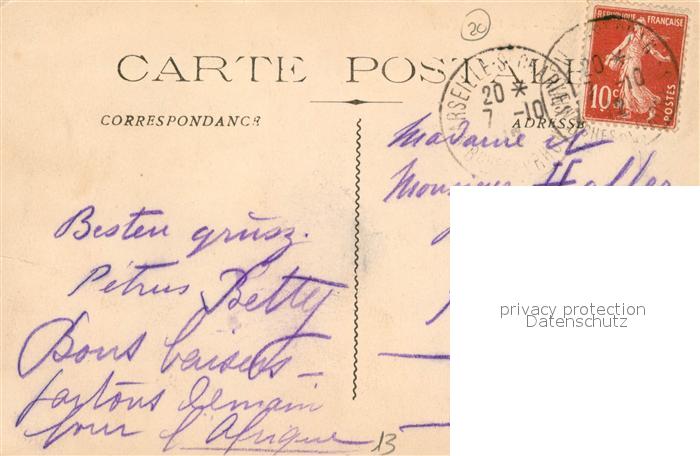 20
CARTE POSTALE
RÉPUBLIQUE FRANÇAISE
10c
POSTES
MARSEILLE
20 *
7 -10
CORRESPONDANCE
ADRESSE
Madame et
Monsieur Haller
Besten grüsz.
Pétrus, Betty
Bons baisers –
partons demain
pour l'Afrique
13
privacy protection
Datenschutz